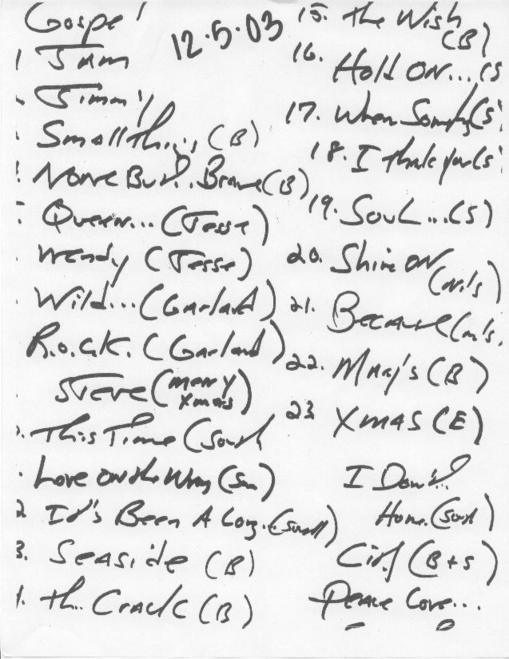 Gospel
12.5.03
1 Jam
Jimmy
Small Thi.. (B)
None But.. Brave (B)
Queen... (Jesse)
Wendy (Jesse)
Wild... (Garland)
R.O.C.K. (Garland)
Steve (merry Xmas)
This Time (South
Love on the Wrong (Sam)
2 It's Been A Long.. (South)
3. Seaside (B)
th.. Crack (B)
15. the Wish (B)
16. Hold ON... (S
17. When Someth (S)
18. I thank you (S)
19. Soul... (S)
20. Shine ON
21. Because
22. Mary's (B)
23 XMAS (E)
I Don't..
Home. (South)
City (B+S)
Peace Love...